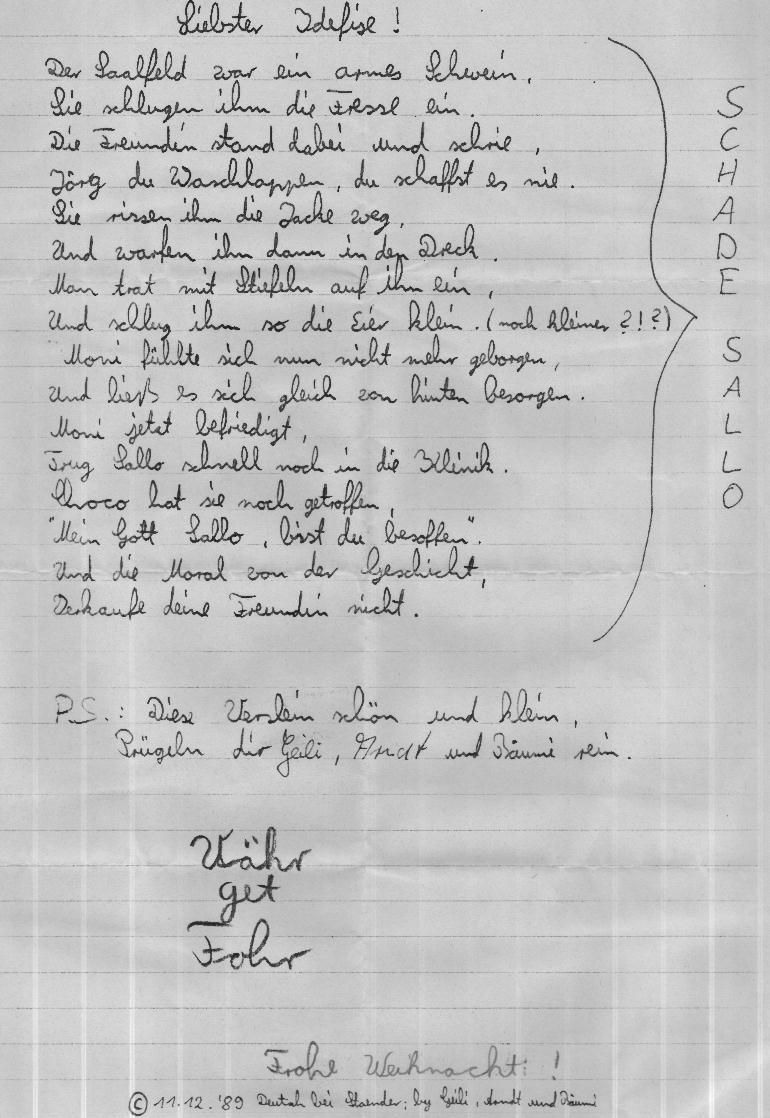 Liebster Idefise!
Der Saalfeld war ein armes Schwein,
Sie schlugen ihm die Fresse ein.
Die Freundin stand dabei und schrie,
Jörg du Waschlappen, du schaffst es nie.
Sie rissen ihm die Jacke weg,
Und warfen ihn dann in den Dreck.
Man trat mit Stiefeln auf ihm ein,
Und schlug ihm so die Eier klein. (noch kleiner ?!?)
Moni fühlte sich nun nicht mehr geborgen,
Und ließ es sich gleich von hinten besorgen.
Moni jetzt befriedigt,
Trug Sallo schnell noch in die Klinik.
Choco hat sie noch getroffen,
"Mein Gott Sallo, bist du besoffen".
Und die Moral von der Geschicht,
Verkaufe deine Freundin nicht.
SCHADE SALLO
P.S.: Diese Verslein schön und klein,
Prügeln dir Geili, Arndt und Bäumi rein.
Vähr
get
Fohr
Frohe Weihnacht: !
© 11.12.'89 Deutsch bei Staender; by Geili, Arndt und Bäumi